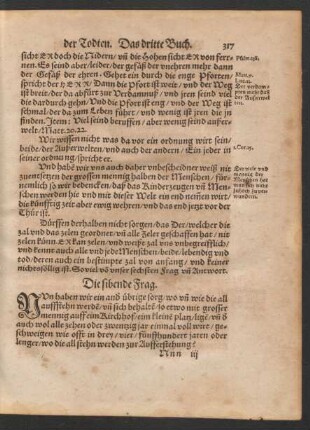 der Todten. Das dritte Buch. 317
sicht ER doch die Nidern / vñ die Hohen sicht ER von fer-
nen. Es seind aber / leider / der gefäß der vnehren mehr dann
der Gefäß der ehren. Gehet ein durch die enge Pforten /
spricht der HERR / Dann die Pfort ist weit / vnd der Weg
ist breit / der da abfürt zur Verdamnuß / vnd jren seind viel
die dardurch gehn / Vnd die Pfort ist eng / vnd der Weg ist
schmal / der da zum Leben führt / vnd wenig ist jren die jn
finden. Item: Viel seind beruffen / aber wenig seind außer-
welt. Matt. 20. 22.
Wir wissen nicht was da vor ein ordnung wirt sein /
beide / der Außerwelten / vnd auch der andern / Ein jeder in
seiner ordnung / spricht er.
Vnd habē wir vns auch daher vnbescheidner weiß nit
zuentsetzen der grossen mennig halben der Menschen / fün-
nemlich so wir bedencken / daß das Kinderzeugen vñ Men-
schen worden hie mit diser Welt ein end nemen wirt /
die künfftig zeit aber ewig wehren / vnd das end jetzt vor der
Thür ist.
Dürffen derhalben nicht sorgen / das Der / welcher die
zal von zelen geordnet / vñ alle Zeler geschaffen hat / mit
zelen künn. ER kan zelen / vnd weißt zal vns vnbegreifflich /
vnd kennt auch alle vnd jede Menschen / beide / lebendig vnd
tod / deren auch ein bestimpte zal von anfang / vnd keiner
nichts völlig ist. So viel vō vnser sechsten Frag vñ Antwort.
Die sibende Frag.
NOn haben wir ein and übrige sorg / wo vñ wie die all
aufferstehn werdē / vñ sich behaltē / so etwo mit grosser
mennig auff eim Kirchhof / ein kleine platz / ligē / vñ s
auch wol alle zehen oder zwentzig jar einmal voll wirt / ge-
schweigen wie offt in drey / vier / fünffhundert jaren oder
lenger / wo die all stehn werden zur Aufferstehung?
Nnn iij
Psalm 138.
Matt. 7.
Luc. 13.
Der verdam-
ten mehr dañ
der Außerwel-
ten.
1. Cor. 15.